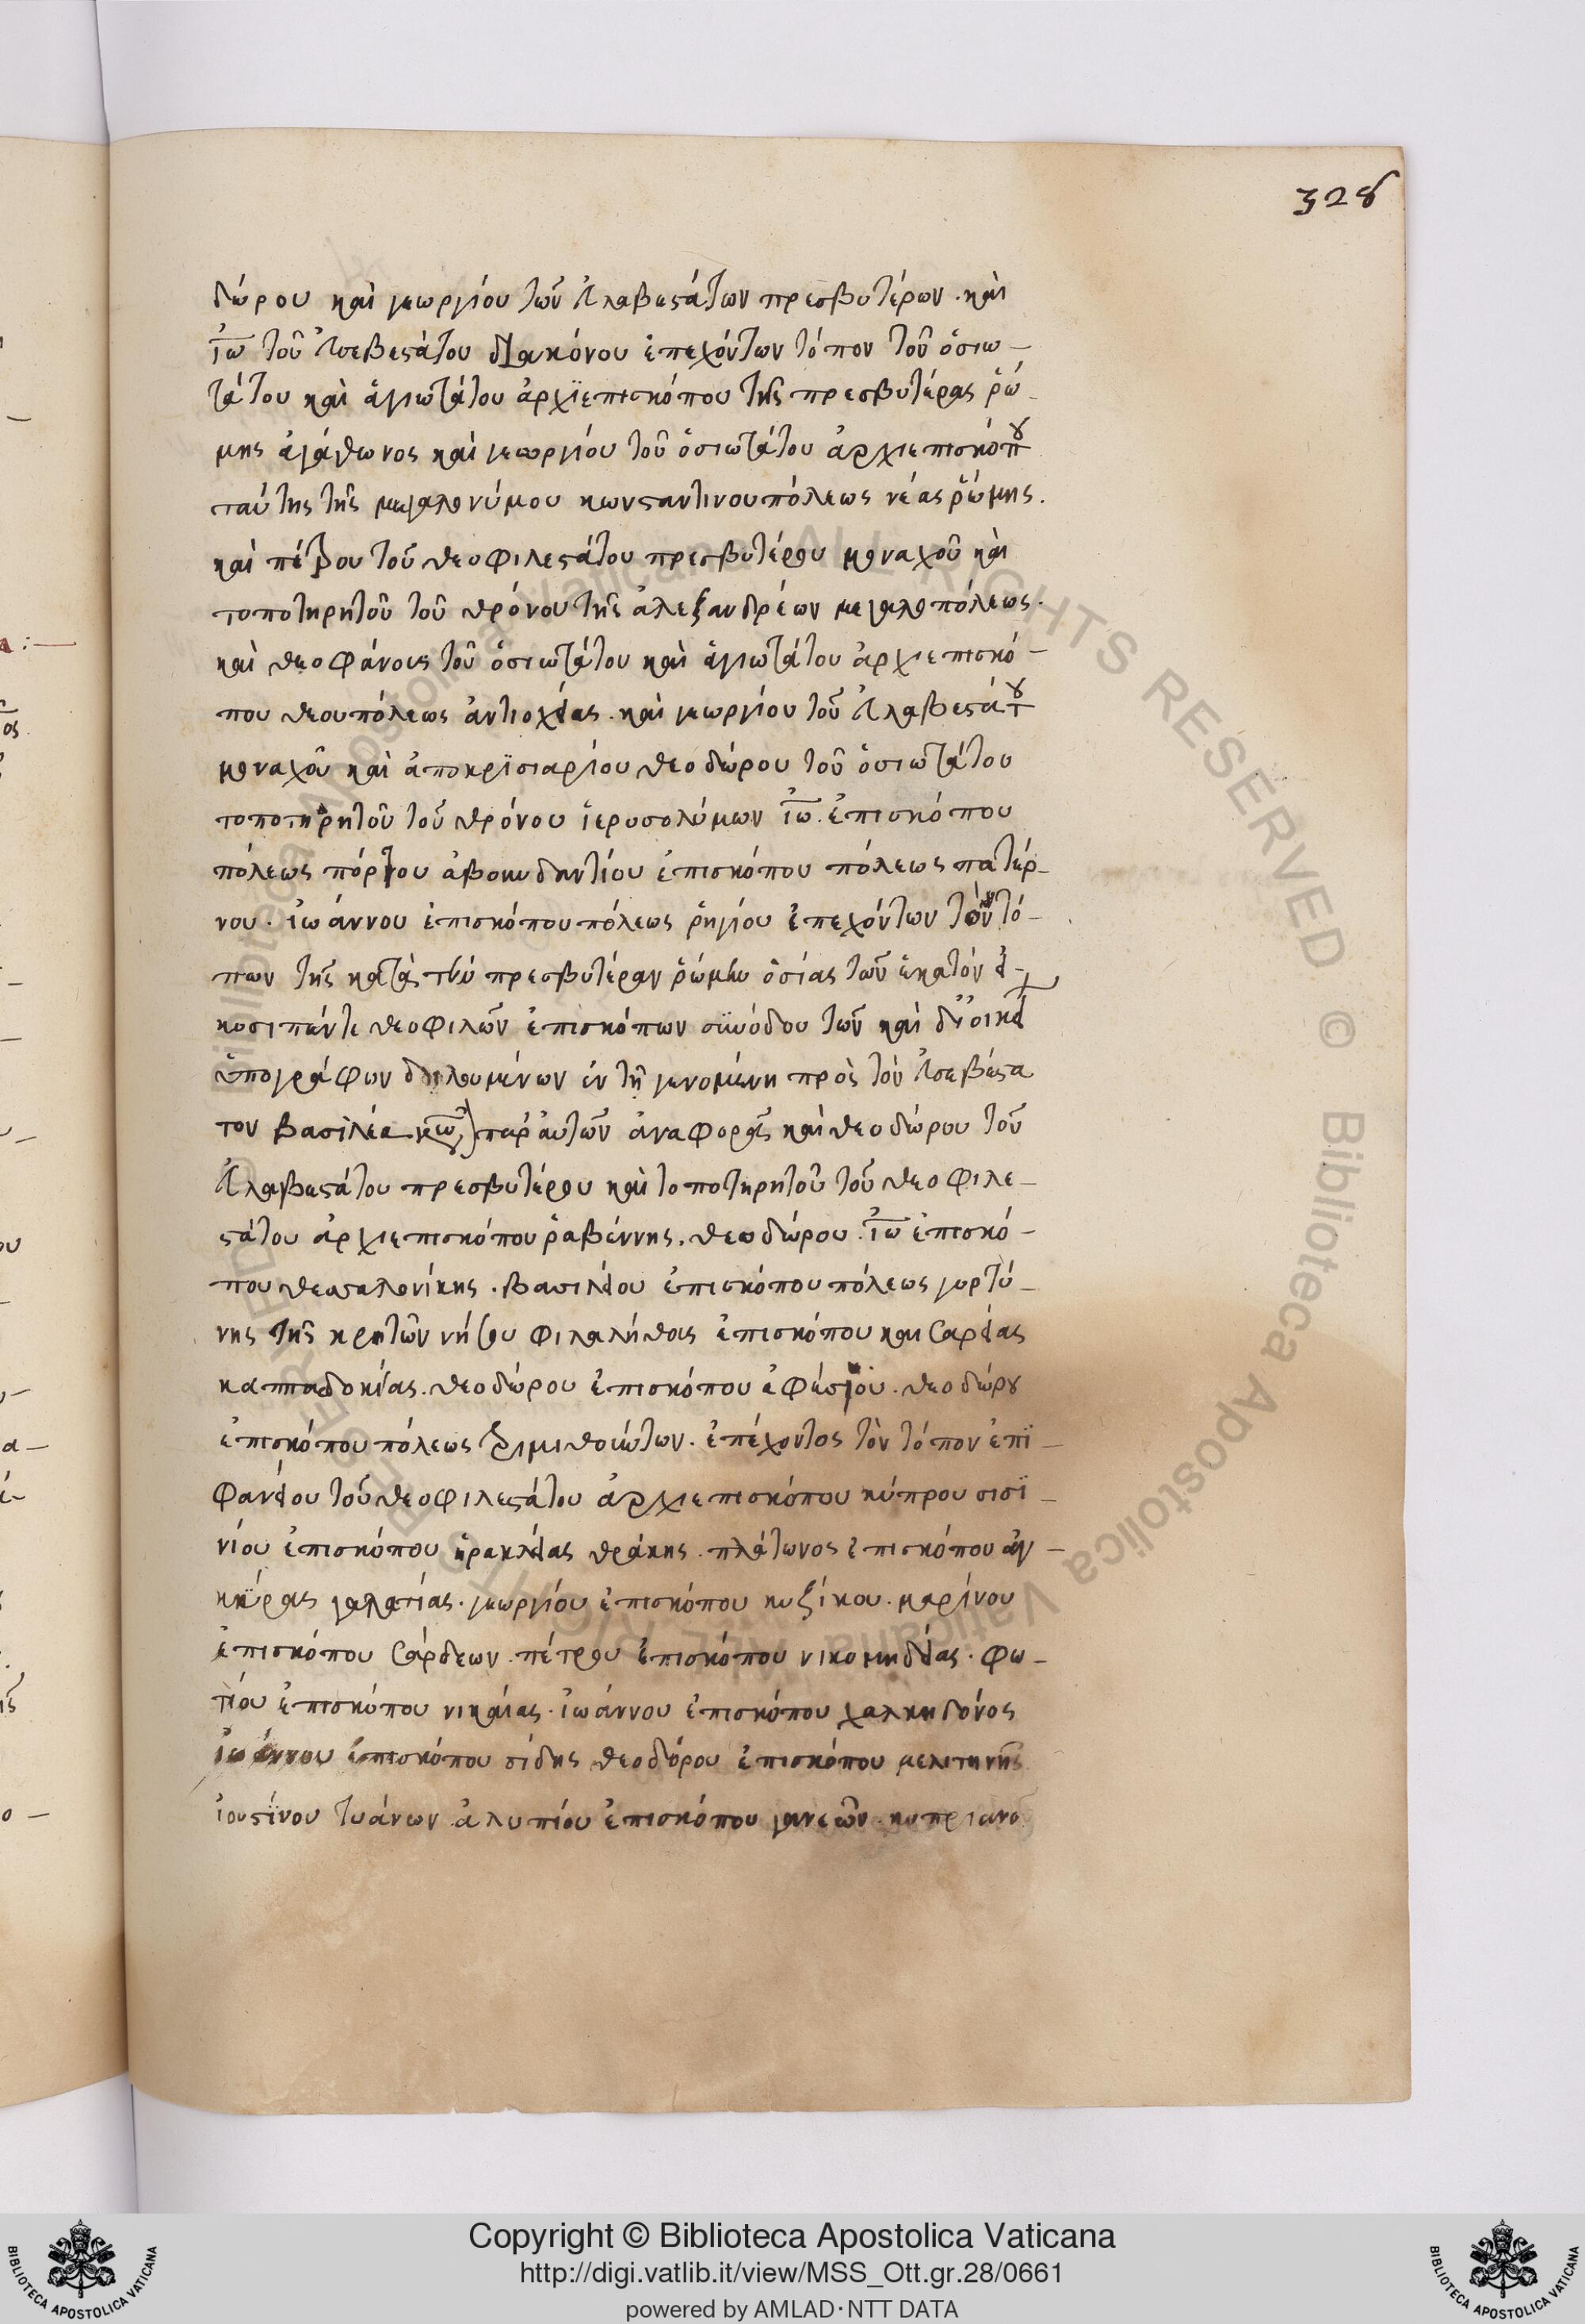 328
δώρου καὶ γεωργίου τῶν εὐλαβεστάτων πρεσβυτέρων. καὶ
ἰω τοῦ εὐσεβεστάτου διακόνου ἐπεχόντων τόπον τοῦ ὁσιω–
τάτου καὶ ἁγιωτάτου ἀρχϊεπισκόπου τῆς πρεσβυτέρας ῥώ–
μης ἀγάθωνος καὶ γεωργίου τοῦ ὁσιωτάτου ἀρχιεπισκόπου
ταύτης τῆς μεγαλονύμου κωνσταντινουπόλεως νέας ῥώμης.
καὶ πέτρου τοῦ θεοφιλεστάτου πρεσβυτέρου μοναχοῦ καὶ
τοποτηρητοῦ τοῦ θρόνου τῆς ἀλεξανδρέων μεγαλοπόλεως.
καὶ θεοφάνους τοῦ ὁσιωτάτου καὶ ἁγιωτάτου ἀρχιεπισκό–
που θεουπόλεως ἀντιοχείας. καὶ γεωργίου τοῦ εὐλαβεστάτου
μοναχοῦ καὶ ἀποκρϊσιαρίου θεοδώρου τοῦ ὁσιωτάτου
τοποτηρητοῦ τοῦ θρόνου ἱεροσολύμων ἰω. ἐπισκόπου
πόλεως πόρτου ἀβουνδαντίου ἐπισκόπου πόλεως πατέρ–
νου. ἰωάννου ἐπισκόπου πόλεως ῥηγίου ἐπεχόντων τὸν τό–
πων τῆς κατὰ τὴν πρεσβυτέραν ῥώμην ὁσίας τῶν ἑκατόν εἰ–
κοσιπέντε θεοφιλῶν ἐπισκόπων συνόδου τῶν καὶ δι' οἰκεί
ὑπογράφων δηλουμένων ἐν τῇ γενομένη πρὸς τὸν εὐσεβέστα
τον βασιλέα κων παρ' αὐτῶν ἀναφορᾶς καὶ θεοδώρου τοῦ
εὐλαβεστάτου πρεσβυτέρου καὶ τοποτηρητοῦ τοῦ θεοφιλε–
στάτου ἀρχιεπισκόπου ῥαβέννης. θεοδώρου. ἰω ἐπισκό–
που θεσσαλονίκης. βασιλείου ἐπισκόπου πόλεως γορτύ–
νης τῆς κρητῶν νήσου φιλαλήθους ἐπισκόπου καισαρείας
καππαδοκίας. θεοδώρου ἐπισκόπου ἐφέσου. θεοδώρου
ἐπισκόπου πόλεως τριμιθούντων. ἐπέχοντος τὸν τόπον ἐπϊ–
φανείου τοῦ θεοφιλεστάτου ἀρχιεπισκόπου κύπρου σισϊ–
νίου ἐπισκόπου ἡρακλείας θράκης. πλάτωνος ἐπισκόπου ἀγ–
κύρας γαλατίας. γεωργίου ἐπισκόπου κυξίκου. μαρίνου
ἐπισκόπου σάρδεων. πέτρου ἐπισκόπου νικομηδείας. φω–
τίου ἐπισκόπου νικαίας. ἰωάννου ἐπισκόπου χαλκηδόνος
ἰωάννου ἐπισκόπου σίδης θεοδόρου ἐπισκόπου μελιτηνῆς
ἰουστίνου τυάνων. ἀλυπίου ἐπισκόπου γανεῶν. κυπριανο
Copyright © Biblioteca Apostolica Vaticana
http://digi.vatlib.it/view/MSS_Ott.gr.28/0661
powered by AMLAD·NTT DATA
BIBLIOTECA APOSTOLICA VATICANA
BIBLIOTECA APOSTOLICA VATICANA